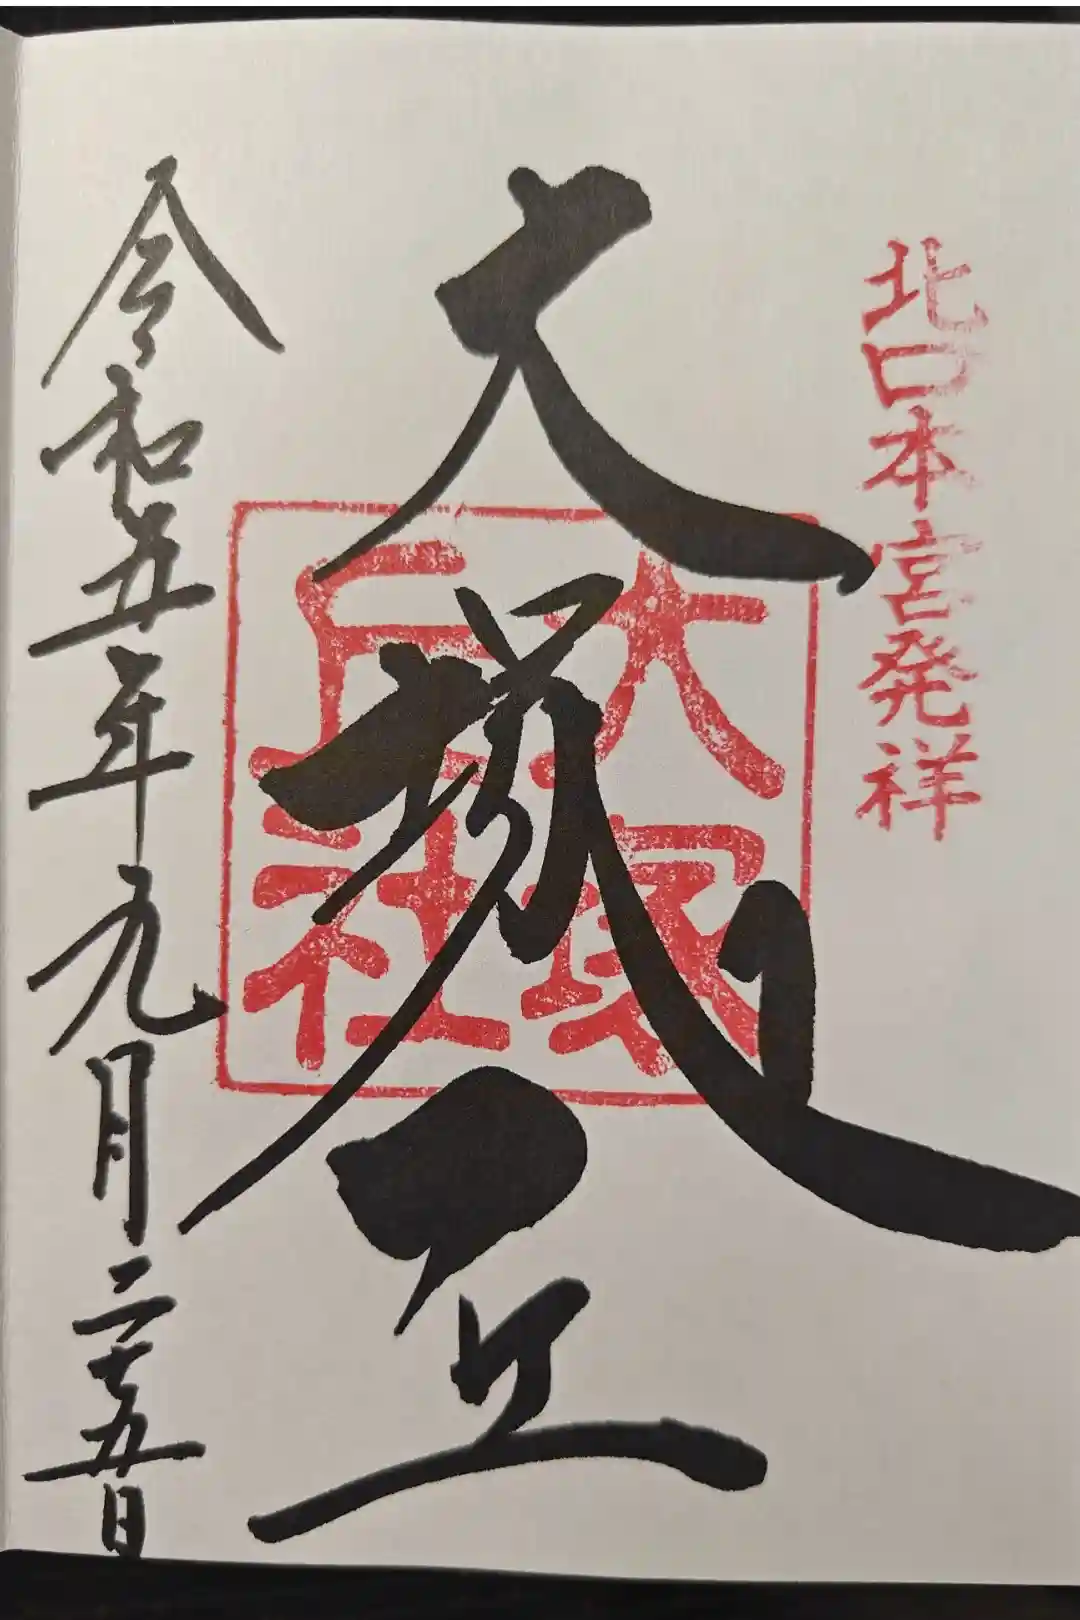 北口本宮発祥
大塚丘
大塚丘社
令和五年九月二十五日